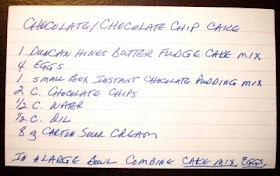 CHOCOLATE/CHOCOLATE CHIP CAKE
1 DUNCAN HINES BUTTER FUDGE CAKE MIX
4 EGGS
1 SMALL BOX INSTANT CHOCOLATE PUDDING MIX
2 C. CHOCOLATE CHIPS
1/2 C. WATER
1/2 C. OIL
8 oz CARTON SOUR CREAM
IN A LARGE BOWL COMBINE CAKE MIX, EGGS,